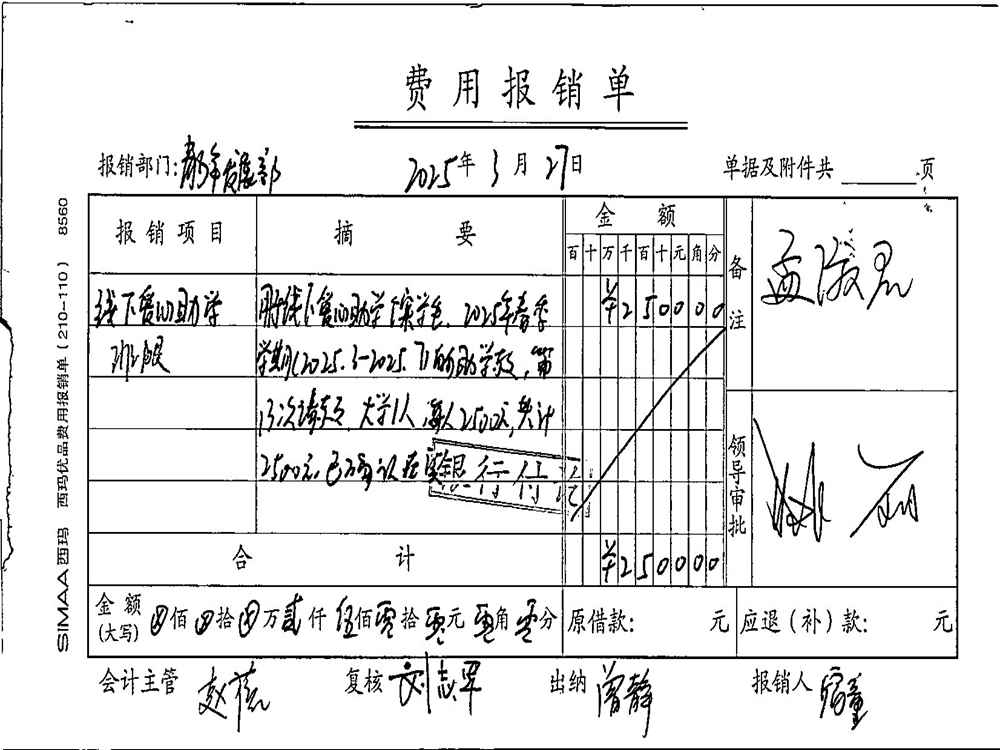 费用报销单
报销部门: 青年发展部 2025年 3月 27日 单据及附件共 页
报销项目 摘要 金额 备注
百十万千百十元角分
线下爱心助学 附线下爱心助学 学生、2025年春季 ¥250000
学期(2025.3-2025.7)的助学款,第
13次请款, 大学1人, 每人2500元,共计
2500元,已确认
银行付讫
领导审批
合计 ¥250000
金额(大写) 佰 拾 万 贰仟 伍佰 零拾 零元 零角 零分 原借款: 元 应退(补)款: 元
会计主管 复核 刘志军 出纳 曾静 报销人
SIMAA西玛 西玛优品费用报销单(210-110) 8560